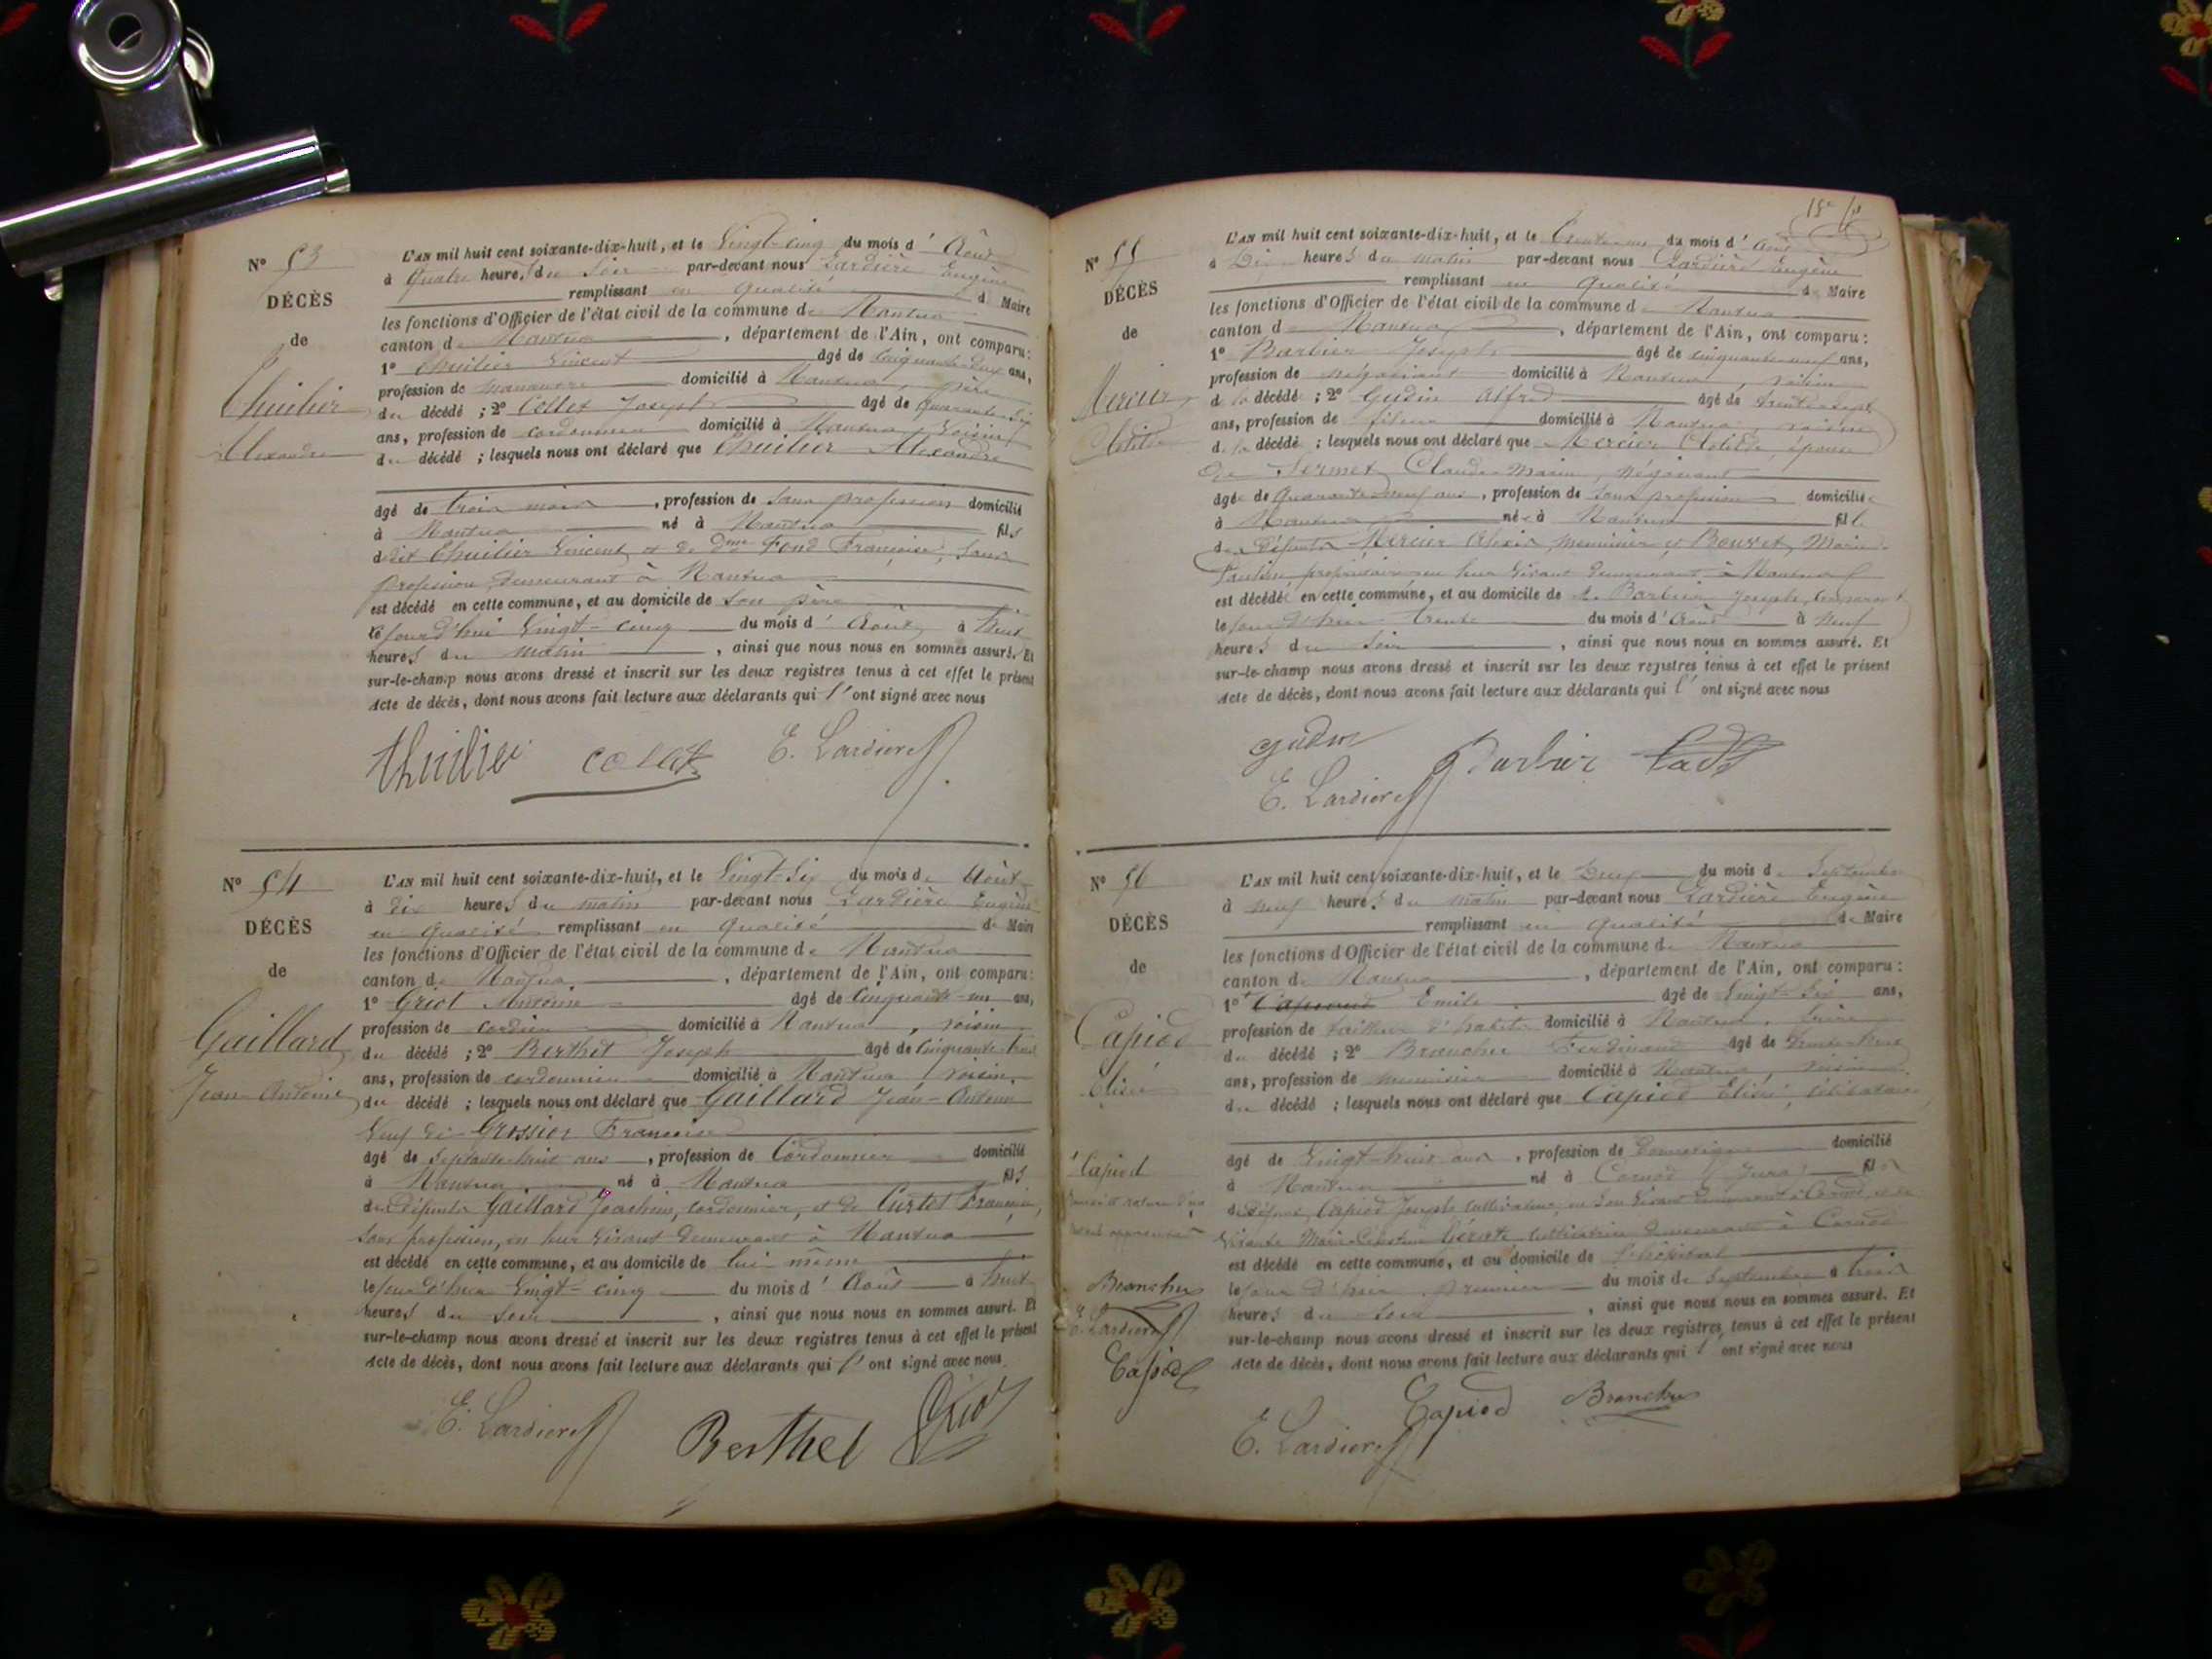 N° 53
DÉCÈS
de
Thuilier
Alexandre
L'AN mil huit cent soixante-dix-huit, et le Vingt-cinq du mois d' Août
à Quatre heures du Soir par-devant nous Lardière Eugène
remplissant en qualité de Maire
les fonctions d'Officier de l'état civil de la commune de Nantua
canton de Nantua, département de l'Ain, ont comparu:
1° Thuilier Vincent âgé de Cinquante-deux ans,
profession de manœuvre domicilié à Nantua, père
du décédé ; 2° Collet Joseph âgé de quarante-six
ans, profession de cordonnier domicilié à Nantua, voisin
du décédé ; lesquels nous ont déclaré que Thuilier Alexandre
âgé de trois mois, profession de sans profession domicilié
à Nantua né à Nantua fils
dudit Thuilier Vincent et de dme Fond Françoise, sans
profession, demeurant à Nantua
est décédé en cette commune, et au domicile de son père
le jourd'hui Vingt-cinq du mois d' Août à huit
heures du matin, ainsi que nous nous en sommes assuré. Et
sur-le-champ nous avons dressé et inscrit sur les deux registres tenus à cet effet le présent
Acte de décès, dont nous avons fait lecture aux déclarants qui l' ont signé avec nous
thuilier colet E. Lardiere
N° 54
DÉCÈS
de
Gaillard
Jean-Antoine
L'AN mil huit cent soixante-dix-huit, et le Vingt-six du mois de Août
à dix heures du matin par-devant nous Lardière Eugène
en qualité remplissant en qualité de Maire
les fonctions d'Officier de l'état civil de la commune de Nantua
canton de Nantua, département de l'Ain, ont comparu:
1° Griot Antoine âgé de Cinquante-un ans,
profession de cordier domicilié à Nantua, voisin
du décédé ; 2° Berthet Joseph âgé de Cinquante-trois
ans, profession de cordonnier domicilié à Nantua, voisin
du décédé ; lesquels nous ont déclaré que Gaillard Jean-Antoine
Veuf de Grossior Françoise
âgé de Septante-huit ans, profession de Cordonnier domicilié
à Nantua né à Nantua fils
de défunts Gaillard Joachim, cordonnier, et de Curtet Françoise,
sans profession, en leur vivant demeurant à Nantua
est décédé en cette commune, et au domicile de lui-même
le jour d'hier Vingt-cinq du mois d' Août à huit
heures du soir, ainsi que nous nous en sommes assuré. Et
sur-le-champ nous avons dressé et inscrit sur les deux registres tenus à cet effet le présent
Acte de décès, dont nous avons fait lecture aux déclarants qui l' ont signé avec nous
E. Lardiere Berthet Griot
N° 55
DÉCÈS
de
Mercier
Clotilde
L'AN mil huit cent soixante-dix-huit, et le Trente-un du mois d' Août
à Dix heures du matin par-devant nous Lardière Eugène
remplissant en qualité de Maire
les fonctions d'Officier de l'état civil de la commune de Nantua
canton de Nantua, département de l'Ain, ont comparu:
1° Barbier Joseph âgé de cinquante-neuf ans,
profession de négociant domicilié à Nantua, voisin
de la décédé ; 2° Gudin Alfred âgé de trente-sept
ans, profession de fileur domicilié à Nantua, voisin
de la décédé ; lesquels nous ont déclaré que Mercier Clotilde, épouse
de Sermet Claude-Marie, négociant
âgée de Quarante-neuf ans, profession de sans profession domiciliée
à Nantua née à Nantua fille
de défunts Mercier Alexis, menuisier et Bouvet Marie
propriétaire en leur vivant demeurant à Nantua
est décédé en cette commune, et au domicile de Barbier Joseph, comparant
le jour d'hier trente du mois d' Août à neuf
heures du soir, ainsi que nous nous en sommes assuré. Et
sur-le-champ nous avons dressé et inscrit sur les deux registres tenus à cet effet le présent
Acte de décès, dont nous avons fait lecture aux déclarants qui l' ont signé avec nous
gudin Barbier
E. Lardiere
N° 56
DÉCÈS
de
Capiod
Elisé
Capiod
Branchu
E. Lardiere
Capiod
L'AN mil huit cent soixante-dix-huit, et le Deux du mois de Septembre
à neuf heures du matin par-devant nous Lardière Eugène
remplissant en qualité de Maire
les fonctions d'Officier de l'état civil de la commune de Nantua
canton de Nantua, département de l'Ain, ont comparu:
1° Emile âgé de Vingt-six ans,
profession de tailleur d'habits domicilié à Nantua, frère
du décédé ; 2° Branchu Ferdinand âgé de
ans, profession de menuisier domicilié à Nantua, voisin
du décédé ; lesquels nous ont déclaré que Capiod Elisé, célibataire,
âgé de Vingt-huit ans, profession de Domestique domicilié
à Nantua né à Cornod (Jura) fils
de défunt Capiod Joseph cultivateur, en son vivant demeurant à Cornod, et de
vivante Marie cultivatrice demeurant à Cornod
est décédé en cette commune, et au domicile de l'hôpital
le jour d'hier premier du mois de Septembre à trois
heures du soir, ainsi que nous nous en sommes assuré. Et
sur-le-champ nous avons dressé et inscrit sur les deux registres tenus à cet effet le présent
Acte de décès, dont nous avons fait lecture aux déclarants qui l' ont signé avec nous
Capiod Branchu
E. Lardiere